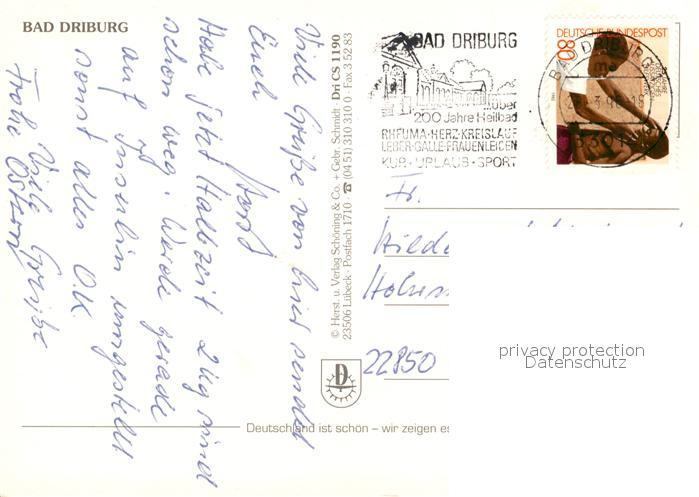 BAD DRIBURG
Viele Grüße von hier sendet
Euch
Horst
Habe jetzt Halbzeit 2 kg sind
schon weg. Werde gerade
auf Insulin umgestellt
sonst alles O.K.
Viele Grüße
Frohe Ostern
© Herst. u. Verlag Schöning & Co. + Gebr. Schmidt · Dri CS 1190
23506 Lübeck · Postfach 1710 · ☎ (04 51) 310 310 0 · Fax 3 52 83
BAD DRIBURG
über
200 Jahre Heilbad
RHEUMA·HERZ·KREISLAUF
LEBER·GALLE·FRAUENLEIDEN
KUR · URLAUB · SPORT
DEUTSCHE BUNDESPOST
80
BAD DRIBURG
Fr.
Hilde
22850
privacy protection
Datenschutz
D
Deutschland ist schön – wir zeigen es